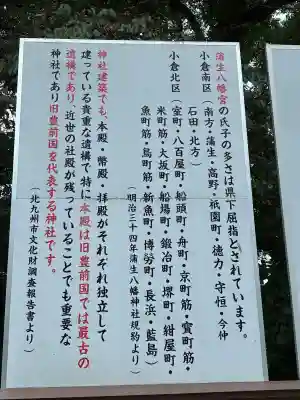 蒲生八幡宮の氏子の多さは県下屈指とされています。
小倉南区（南方・蒲生・高野・祇園町・徳力・守恒・今仲
石田・北方）
小倉北区（室町・八百屋町・船頭町・舟町・京町筋・寳町筋・
米町筋・大坂町・船場町・鍛冶町・堺町・紺屋町・
魚町筋・鳥町筋・新魚町・博労町・長浜・藍島）
（明治三十四年蒲生八幡神社規約より）
神社建築でも、本殿・幣殿・拝殿がそれぞれ独立して
建っている貴重な遺構で特に本殿は旧豊前国では最古の
遺構であり、近世の社殿が残っていることでも重要な
神社であり旧豊前国を代表する神社です。
（北九州市文化財調査報告書より）